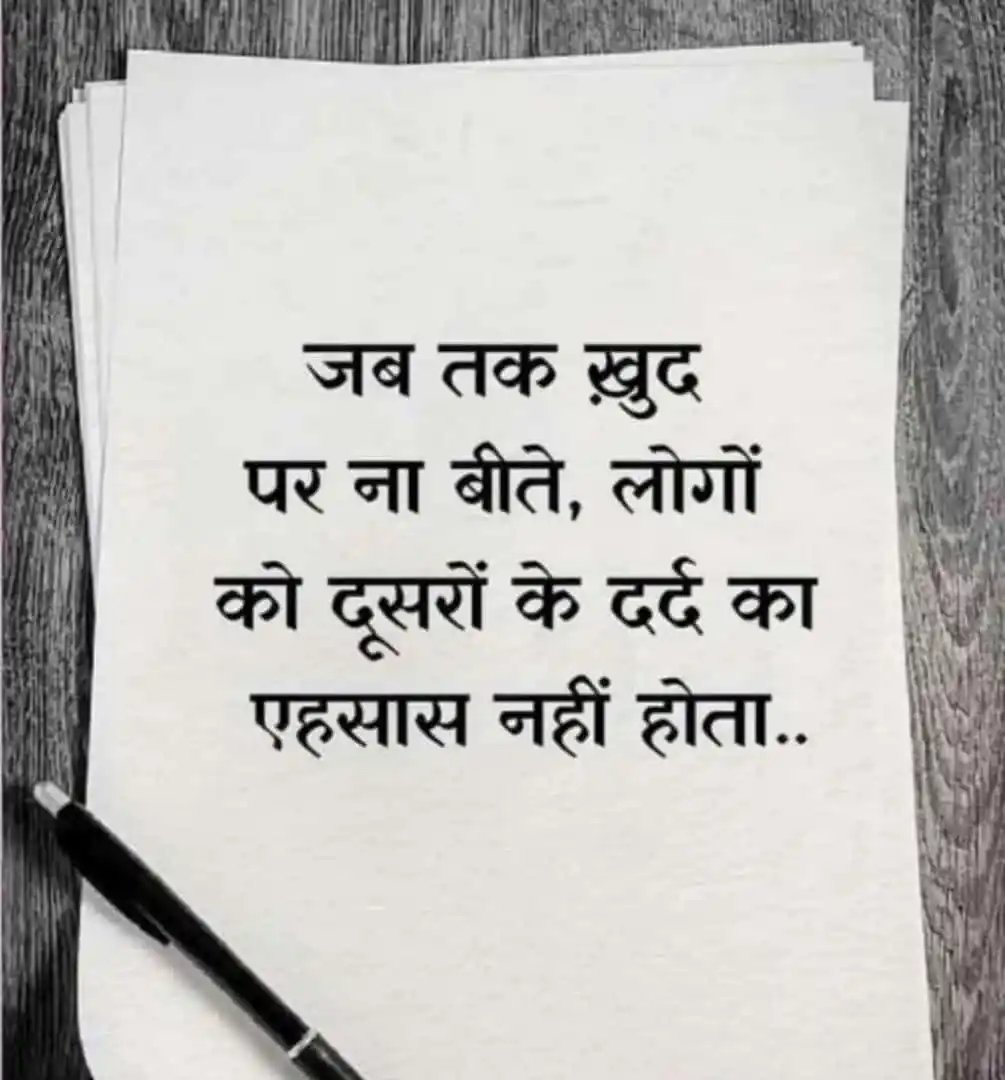 जब तक ख़ुद
पर ना बीते, लोगों
को दूसरों के दर्द का
एहसास नहीं होता..